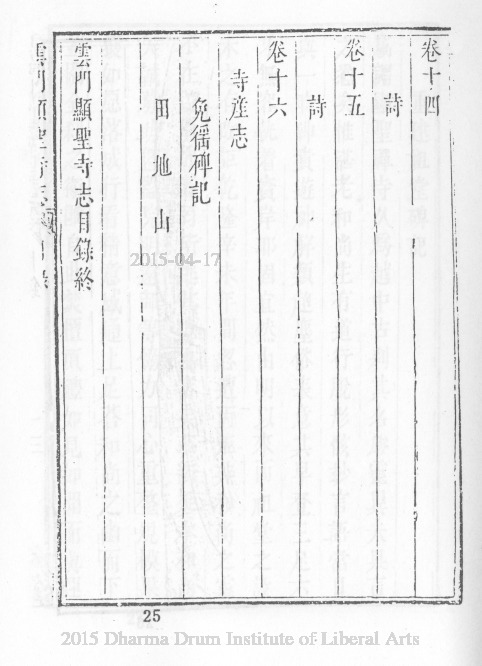 卷十四
詩
卷十五
詩
卷十六
寺產志
免徭碑記
田地山
雲門顯聖寺志目錄終
雲門顯聖寺志
目錄
2015-04-17
25
2015 Dharma Drum Institute of Liberal Arts